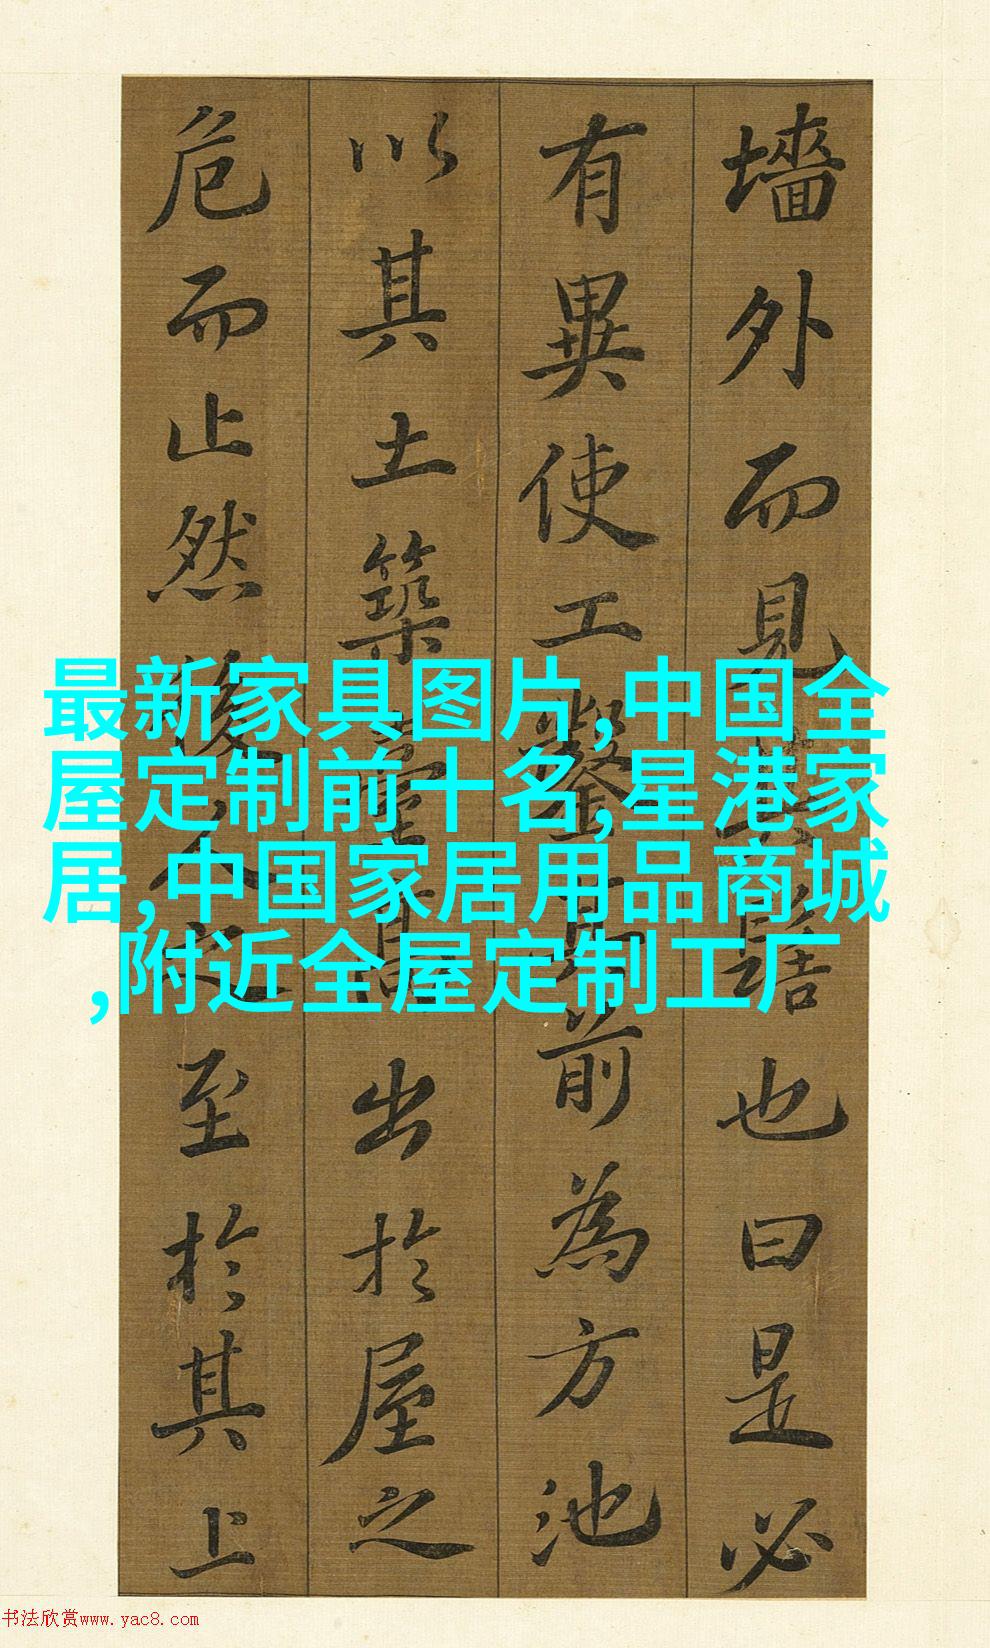 墻外而見其髻也曰是必
有異使工鑿其前為方池
以其土築臺高出於屋之
危而止然後人之至於其上
最新家具图片,中国全
屋定制前十名,星港家
居,中国家居用品商城
,附近全屋定制工厂
书法欣赏www.yac8.com